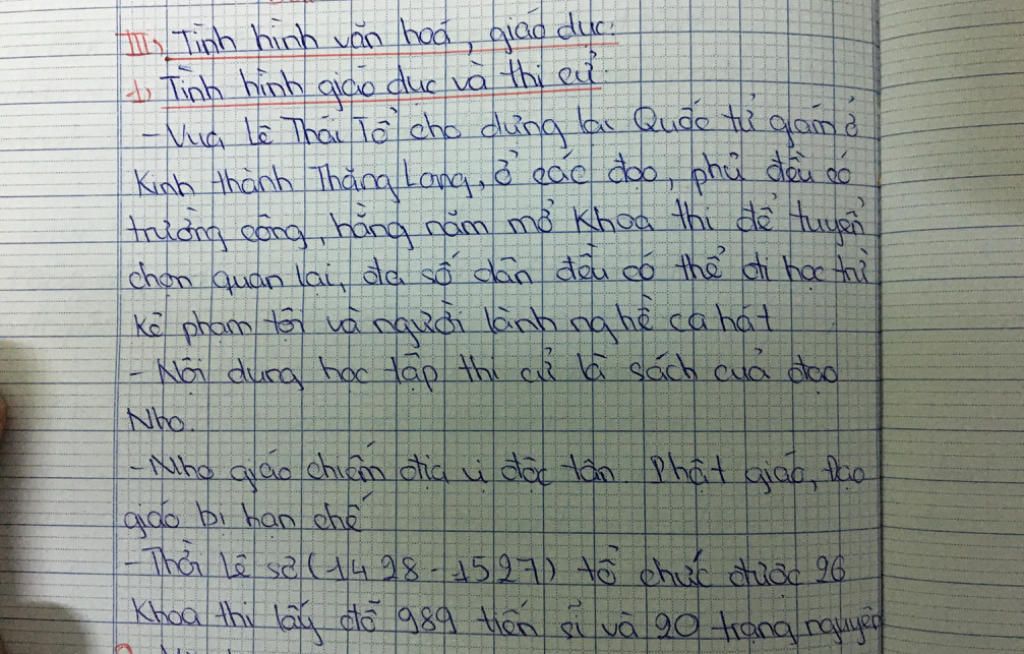 III, Tình hình văn hoá, giáo dục.
1, Tình hình giáo dục và thi cử.
- Vua Lê Thái Tổ cho dựng lại Quốc tử giám ở
Kinh thành Thăng Long, ở các đạo, phủ đều có
trường công, hằng năm mở khoa thi để tuyển
chọn quan lại, đa số dân đều có thể đi học trừ
kẻ phạm tội và người lành nghề ca hát
- Nội dung học tập thi cử là sách của đạo
Nho.
- Nho giáo chiếm địa vị độc tôn. Phật giáo, Đạo
giáo bị hạn chế
- Thời Lê sơ (1428-1527) tổ chức được 26
Khoa thi lấy đỗ 989 tiến sĩ và 20 trạng nguyên